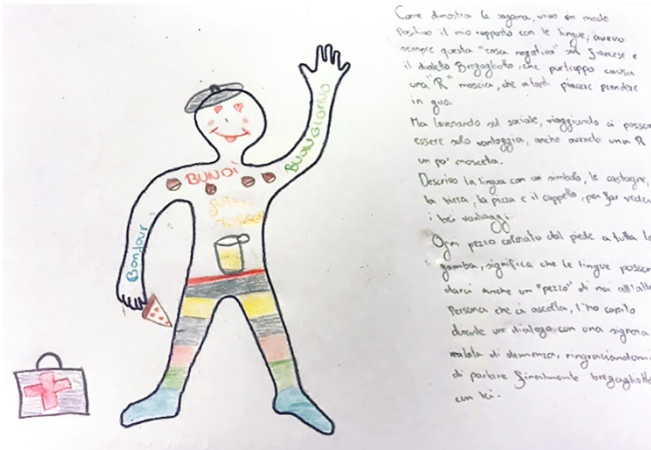 BUNDÌ
BUONGIORNO
GUTEN
MORGEN
Bonjour
Come dimostra la sagoma, vivo in modo
positivo il mio rapporto con le lingue, avevo
sempre questa "cosa negativa" sul francese e
il dialetto Bregagliotto, che purtroppo causa
una "R" moscia, che a tanti piacere prendere
in giro.
Ma lavorando sul sociale, viaggiando ci posson
essere solo vantaggi, anche avendo una R
un po' moscetta.
Descrivo la lingua con un simbolo, le castagne,
la birra, la pizza e il cappello, per far veder
i bei vantaggi.
Ogni pezzo colorato dal piede a tutta la
gamba, significa che le lingue posson
darci anche un "pezzo" di noi
persona che ci ascolta, l'ho capito
durante un dialogo con una signora
malata di demenza, ringraziandomi
di parlare finalmente bregagliotto
con lei.